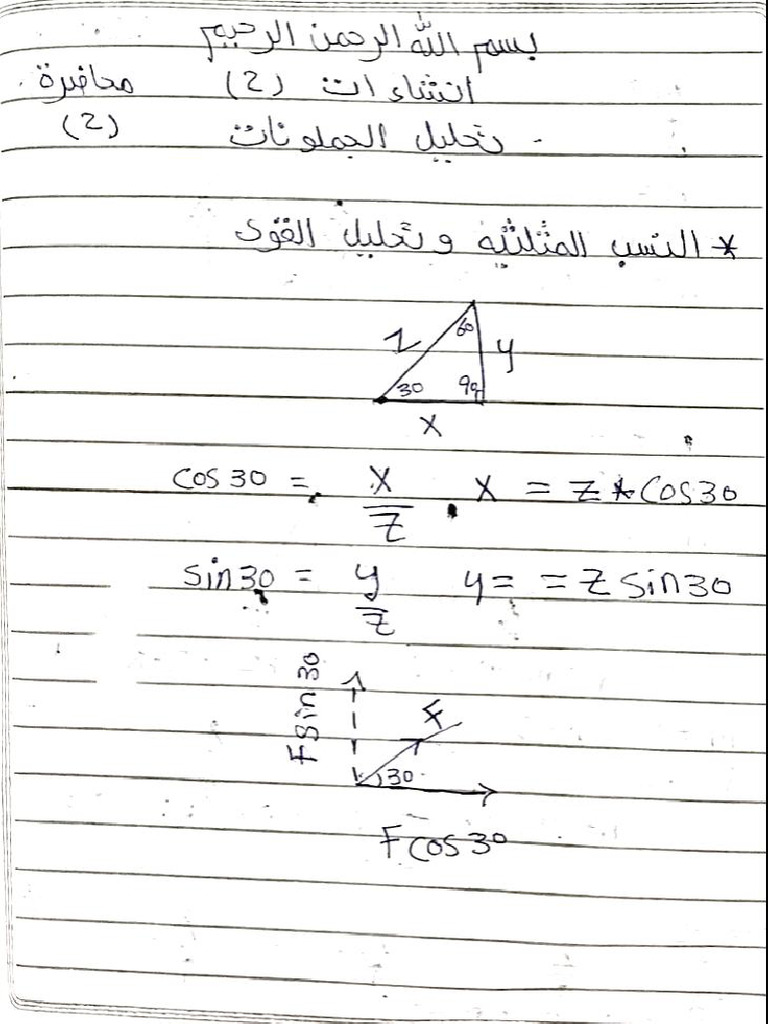 بسم الله الرحمن الرحيم
انشاءات (2) محاضرة (2)
- تحليل الجملونات
* النسب المثلثيه وتحليل القوى
60
z y
30 90
x
cos 30 = x/z . x = z * cos 30
sin 30 = y/z y = = z sin 30
F sin 30
F
30
F cos 30